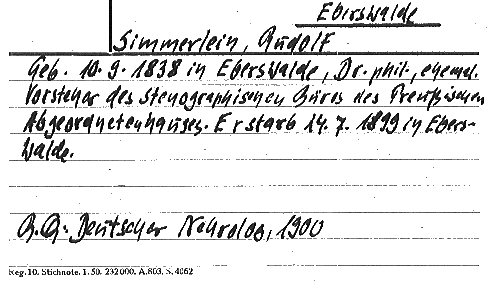 Eberswalde
Simmerlein, Rudolf
Geb. 10.9.1838 in Eberswalde, Dr. phil., ehemal.
Vorsteher des stenographischen Büros des Preußischen
Abgeordnetenhauses. Er starb 14.7.1899 in Ebers-
walde.
B.B.: Deutscher Nekrolog, 1900
Reg. 10. Stichnote. 1. 50. 232000. A. 803. S. 4062